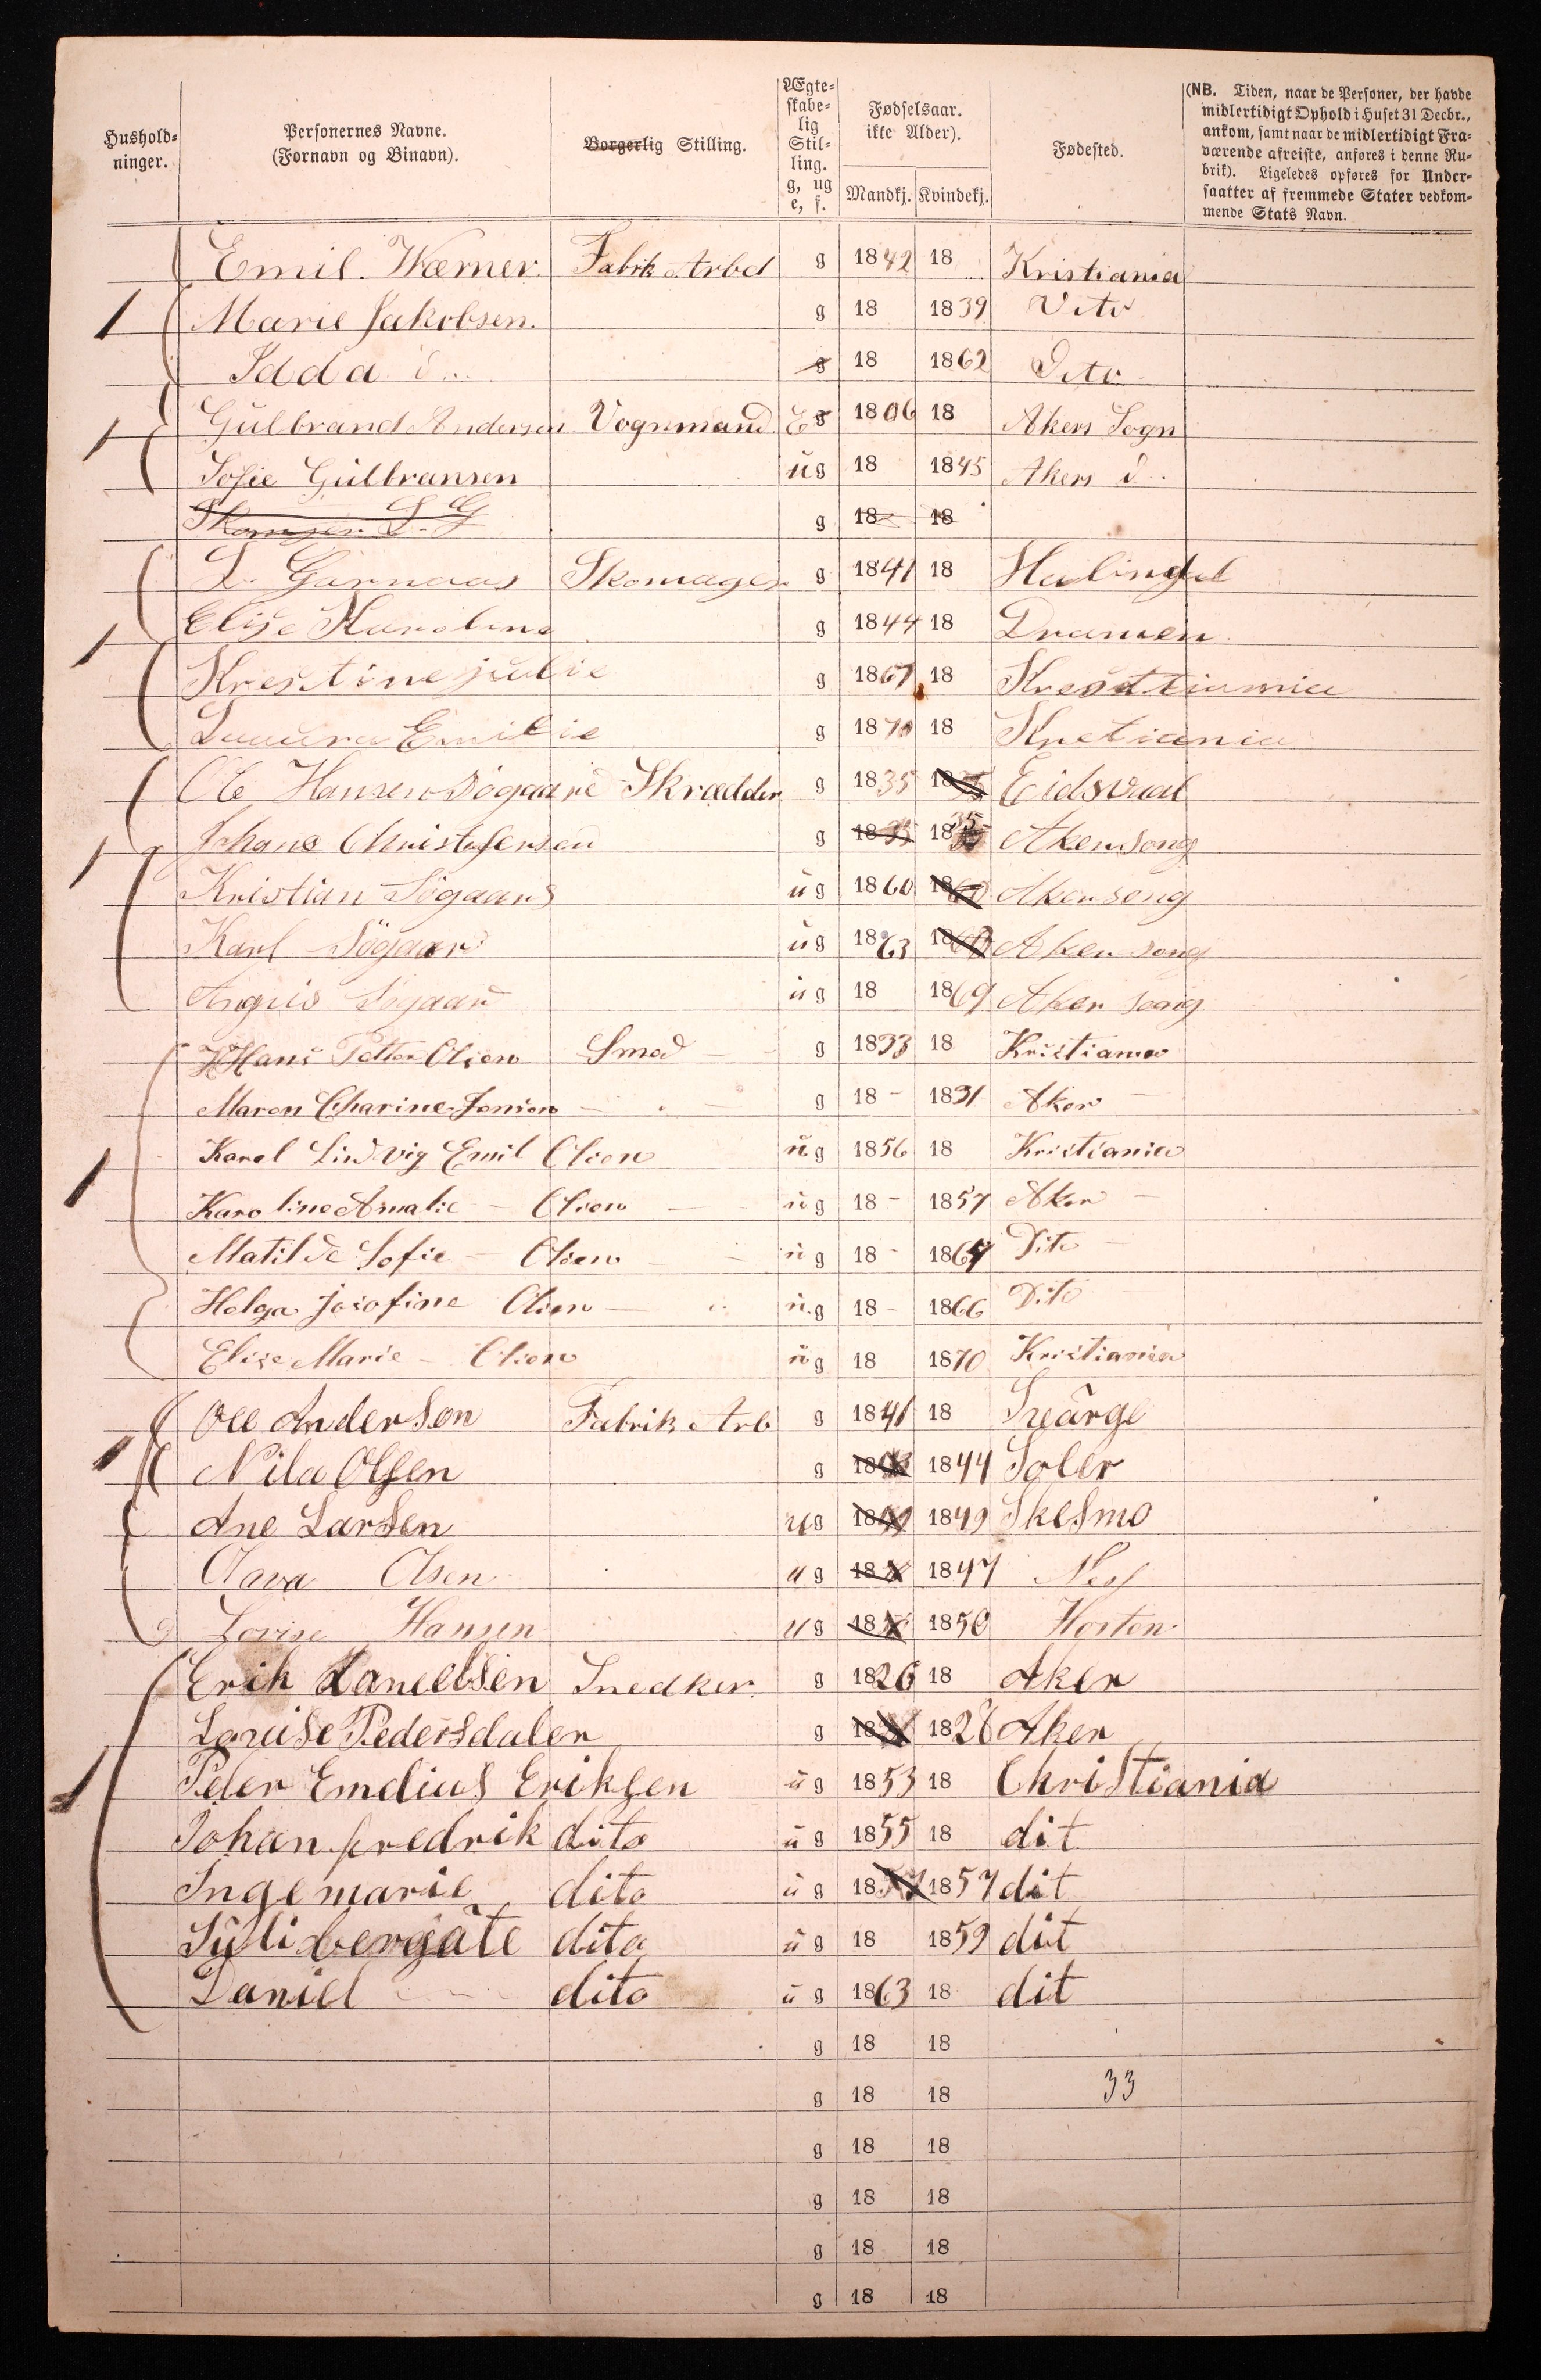 Hushold-
ninger.
Personernes Navne.
(Fornavn og Binavn).
Borgerlig Stilling.
Ægte-
skabe-
lig
Stil-
ling.
g, ug
e, f.
Fødselsaar.
ikke Alder).
Mandkj. Kvindekj.
Fødested.
(NB. Tiden, naar de Personer, der havde
midlertidigt Ophold i Huset 31 Decbr.,
ankom, samt naar de midlertidigt Fra-
værende afreiste, anføres i denne Ru-
brik). Ligeledes opføres for Under-
saatter af fremmede Stater vedkom-
mende Stats Navn.
Emil. Wærner. Fabrik Arbd g 1842 18 Kristiania
1 Marie Jakobsen. g 18 1839 Dito
Idda d.. g 18 1862 Dito
1 Gulbrand Andersen Vognmand E g 1806 18 Akers Sogn
Sofie Gulbransen ug 18 1845 Akers d..
L. G g 18 18
L. Garnaas Skomager g 1841 18
1 Elise Karoline g 1844 18 Dramen
Krestine julie g 1867 18
Laaura Emilie g 1870 18
Ole Hansen Søgaard Skrædder g 1835 18 Eidsvaal
1 Johane Christofersen g 18 1835 Akersong
Kristian Søgaard ug 1860 18 Akersong
Karl Søgaard ug 1863 18 Aker song
Søgaard ug 18 1869 Aker song
Hans Petter Olsen Smed g 1833 18 Kristiania
Maren Charine Jensen g 18 - 1831 Aker
Karel Ludvig Emil Olsen ug 1856 18 Kristiania
1 Karoline Amalie - Olsen ug 18 - 1857 Aker -
Matilde Sofie - Olsen ug 18 - 1864 Dito
Helga Josofine Olsen ug 18 - 1866 Dito
Elise Marie - Olsen ug 18 1870 Kristiania
Ole Anderson Fabrik Arb g 1841 18
1 Nila Olsen g 18 1844 Soler
Ane Larsen ug 18 1849 Skesmo
Olava Olsen ug 18 1847 Nes
Lovise Hansen ug 18 1850 Horten
Erik Danielsen Snedker. g 1826 18 Aker
Louise Pedersdaler g 18 1828 Aker
1 Peder Emdius Eriksen ug 1853 18 Christiania
Johan fredrik dito ug 1855 18 dit
Inge marie dito ug 18 1857 dit
dito ug 18 1859 dit
Daniel dito ug 1863 18 dit
g 18 18
g 18 18 33
g 18 18
g 18 18
g 18 18
g 18 18